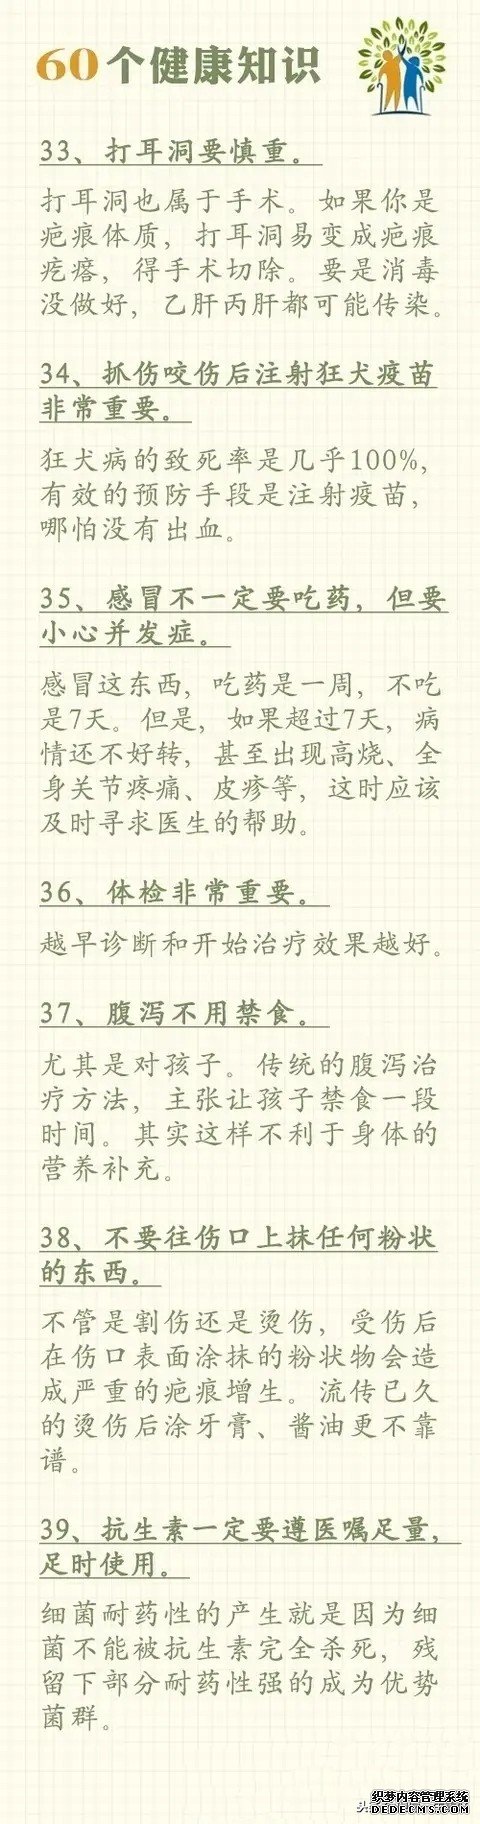 60个健康知识
33、打耳洞要慎重。
打耳洞也属于手术。如果你是
疤痕体质，打耳洞易变成疤痕
疙瘩，得手术切除。要是消毒
没做好，乙肝丙肝都可能传染。
34、抓伤咬伤后注射狂犬疫苗
非常重要。
狂犬病的致死率是几乎100%，
有效的预防手段是注射疫苗，
哪怕没有出血。
35、感冒不一定要吃药，但要
小心并发症。
感冒这东西，吃药是一周，不吃
是7天。但是，如果超过7天，病
情还不好转，甚至出现高烧、全
身关节疼痛、皮疹等，这时应该
及时寻求医生的帮助。
36、体检非常重要。
越早诊断和开始治疗效果越好。
37、腹泻不用禁食。
尤其是对孩子。传统的腹泻治
疗方法，主张让孩子禁食一段
时间。其实这样不利于身体的
营养补充。
38、不要往伤口上抹任何粉状
的东西。
不管是割伤还是烫伤，受伤后
在伤口表面涂抹的粉状物会造
成严重的疤痕增生。流传已久
的烫伤后涂牙膏、酱油更不靠
谱。
39、抗生素一定要遵医嘱足量，
足时使用。
细菌耐药性的产生就是因为细
菌不能被抗生素完全杀死，残
留下部分耐药性强的成为优势
菌群。
织梦内容管理系统
DEDECMS.COM